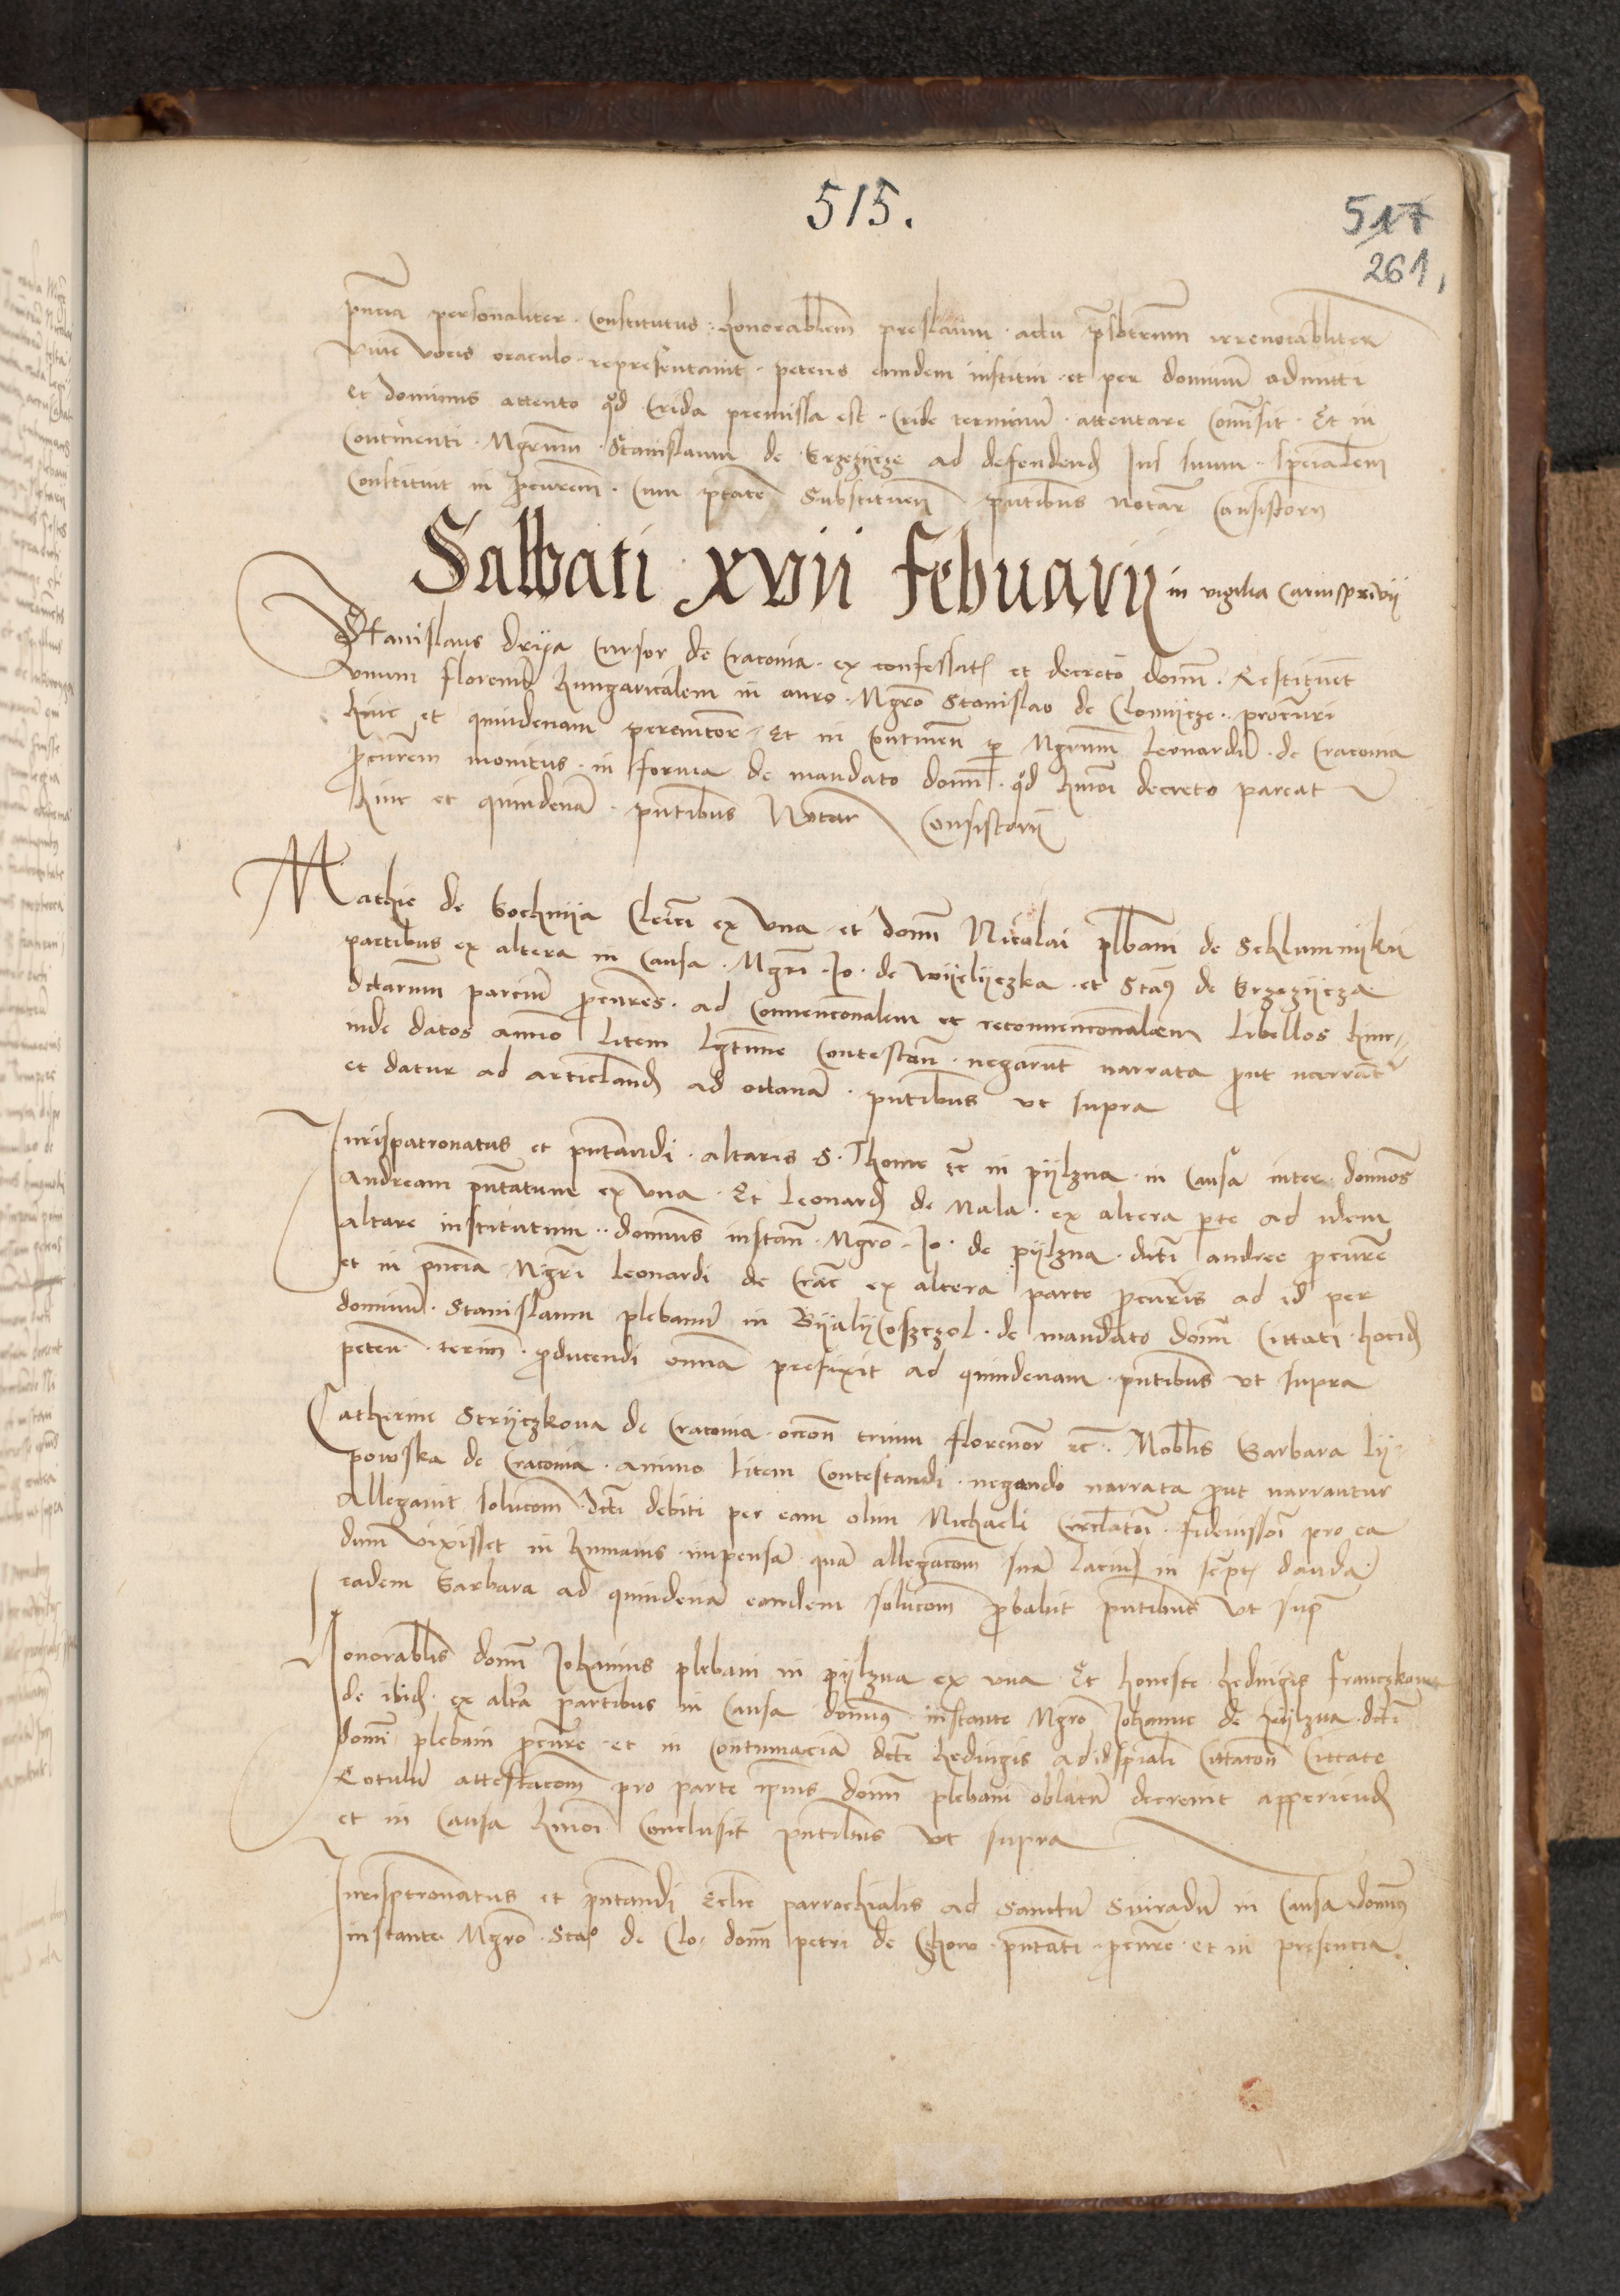 515.
517
261,
pñcia personaliter Constitutus honorabilem preslaum actu p̃sbiterum irreuocabiliter
viue vocis oraculo representauit petens eundem institui et per dominum admitti
et dominus attento qd Crida premissa est Cride terminum attentare Comisit Et in
Continenti Mgrum Stanislaum de Grzezijcze ad defendend Jus suum specialem
Constituit in ꝓcurem̃ Cum ptate Substituen̄ pñtibus notar Consistorij
Sabbati xvij Febuarij in vigilia Carnisprivij
Stanislaus drija Cursor de Cracouia ex confessat et decreto domī Restituet
vnum florenū hungaricalem in auro Mgro Stanislao de Clomijcze procuri
hinc et quindenam peremtore Et in Contineñ ꝑ Mgrum Leonardū de Cracouia
ꝓcurem monitus in forma de mandato domī qd hm̄oi decreto pareat
hinc et quindenā pñtibus Notar Consistorij
Mathie de Bochnija Clerici ex vna et domī Nicolai plbani de Schlumnijkij
partibus ex altera in Causa Mgri Jo de Wijelijczka et Staꝰ de Grzezijcza
dctarum parciū ꝓcures ad Conuencionalem et reconuencionalem Libellos hinc
inde datos animo Litem Lgtime Contestan̄ negarūt narrata ꝓut narrant
et datur ad articland ad octauā pñtibus vt supra
Jurispatronatus et pñtandi altaris S. Thome etc in pijlzna in Causa inter dominos
Andream pñtatum ex vna Et Leonard de Mala ex altera pte ad idem
altare institutum dominus instan̄ Mgro Jo de pijlzna dicti andree ꝓcure
et in pñcia Mgri Leonardi de Crac ex altera parte ꝓcuris ad id per
dominū Stanislaum plebanū in Bijalijkosczol de mandato domī Cittati hocid
peten̄ termī ꝓducendi omnia prefixit ad quindenam pñtibus vt supra
Catherine Strijczkowa de Cracouia occōn trium florenor etc Nobilis Barbara Lij
powska de Cracouia animo Litem Contestandi negando narrata ꝓut narrantur
Allegauit solucom dcti debiti per eam olim Michaeli Circulatori fideiussori pro ea
dum vixisset in humanis impensā quā allegacom suā Lacius in scpt dandā
eadem Barbara ad quindenā eandem solucom ꝓbabit pñtibus vt supᵃ
Honorabilis domī Johannis plebani in pijlzna ex vna Et honeste hedwigis Franczkowa
de ibid ex altera partibus in Causa dominꝰ instante Mgro Johanne de pijlzna dicti
domī plebani ꝓcure et in Contumaciā dicte hedwigis ad id spiali Cittacoñ Cittate
Rotulū attestacom pro parte ipius domī plebani oblatū decreuit apperiend
et in Causa hm̄oi Conclusit pñtibus vt supra
Jurisptronatus et pñtandi Eclie parrochialis ad sanctū Suiradū in Causa dominꝰ
instante Mgro Stao de Clo domī petri de Czchow pñtati ꝓcure et in presencia